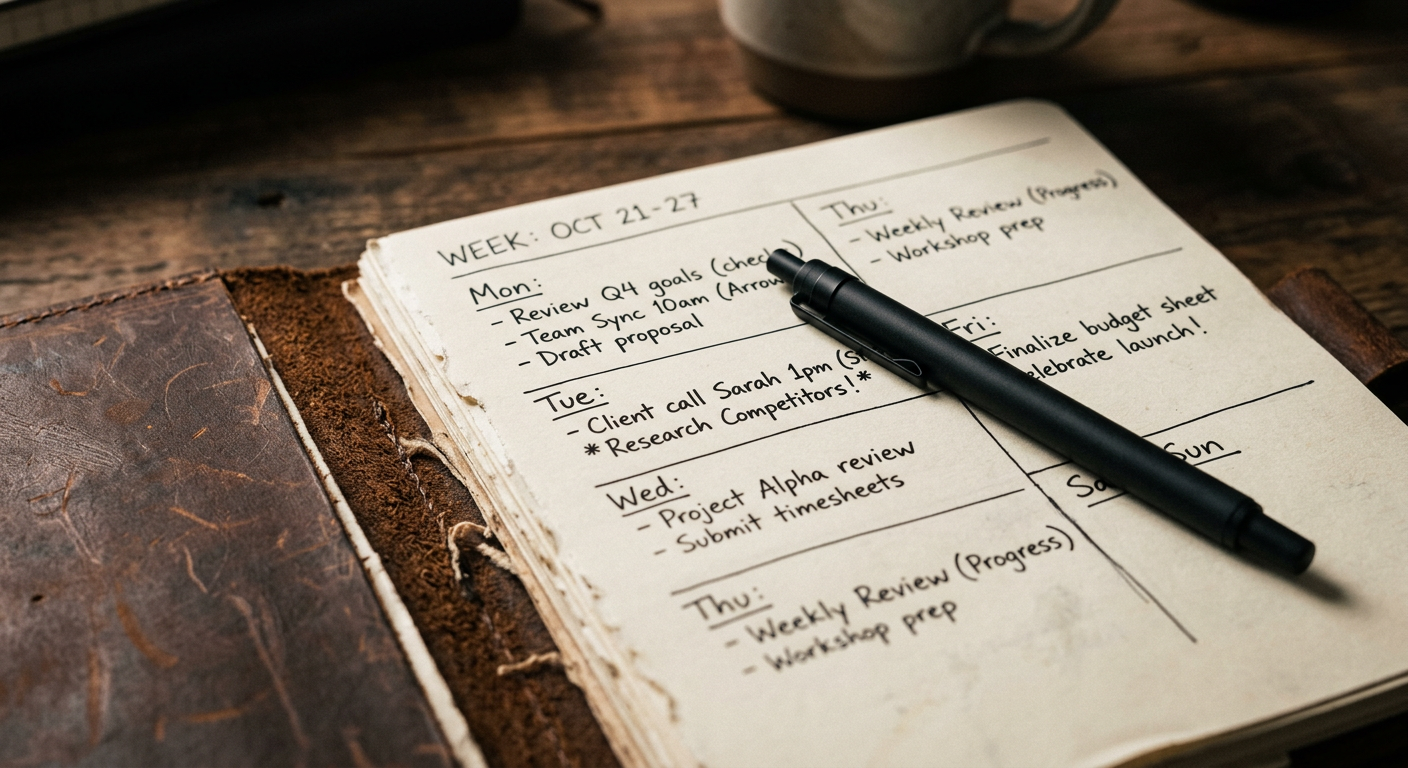 WEEK: OCT 21-27
Mon:
- Review Q4 goals (check)
- Team Sync 10am (Arrow
- Draft proposal
Tue:
- Client call Sarah 1pm
* Research Competitors! *
Wed:
- Project Alpha review
- Submit timesheets
Thu:
- Weekly Review (Progress)
- Workshop prep
Thu:
- Weekly Review (Progress)
- Workshop prep
Fri:
Finalize budget sheet
elebrate launch!
Sun